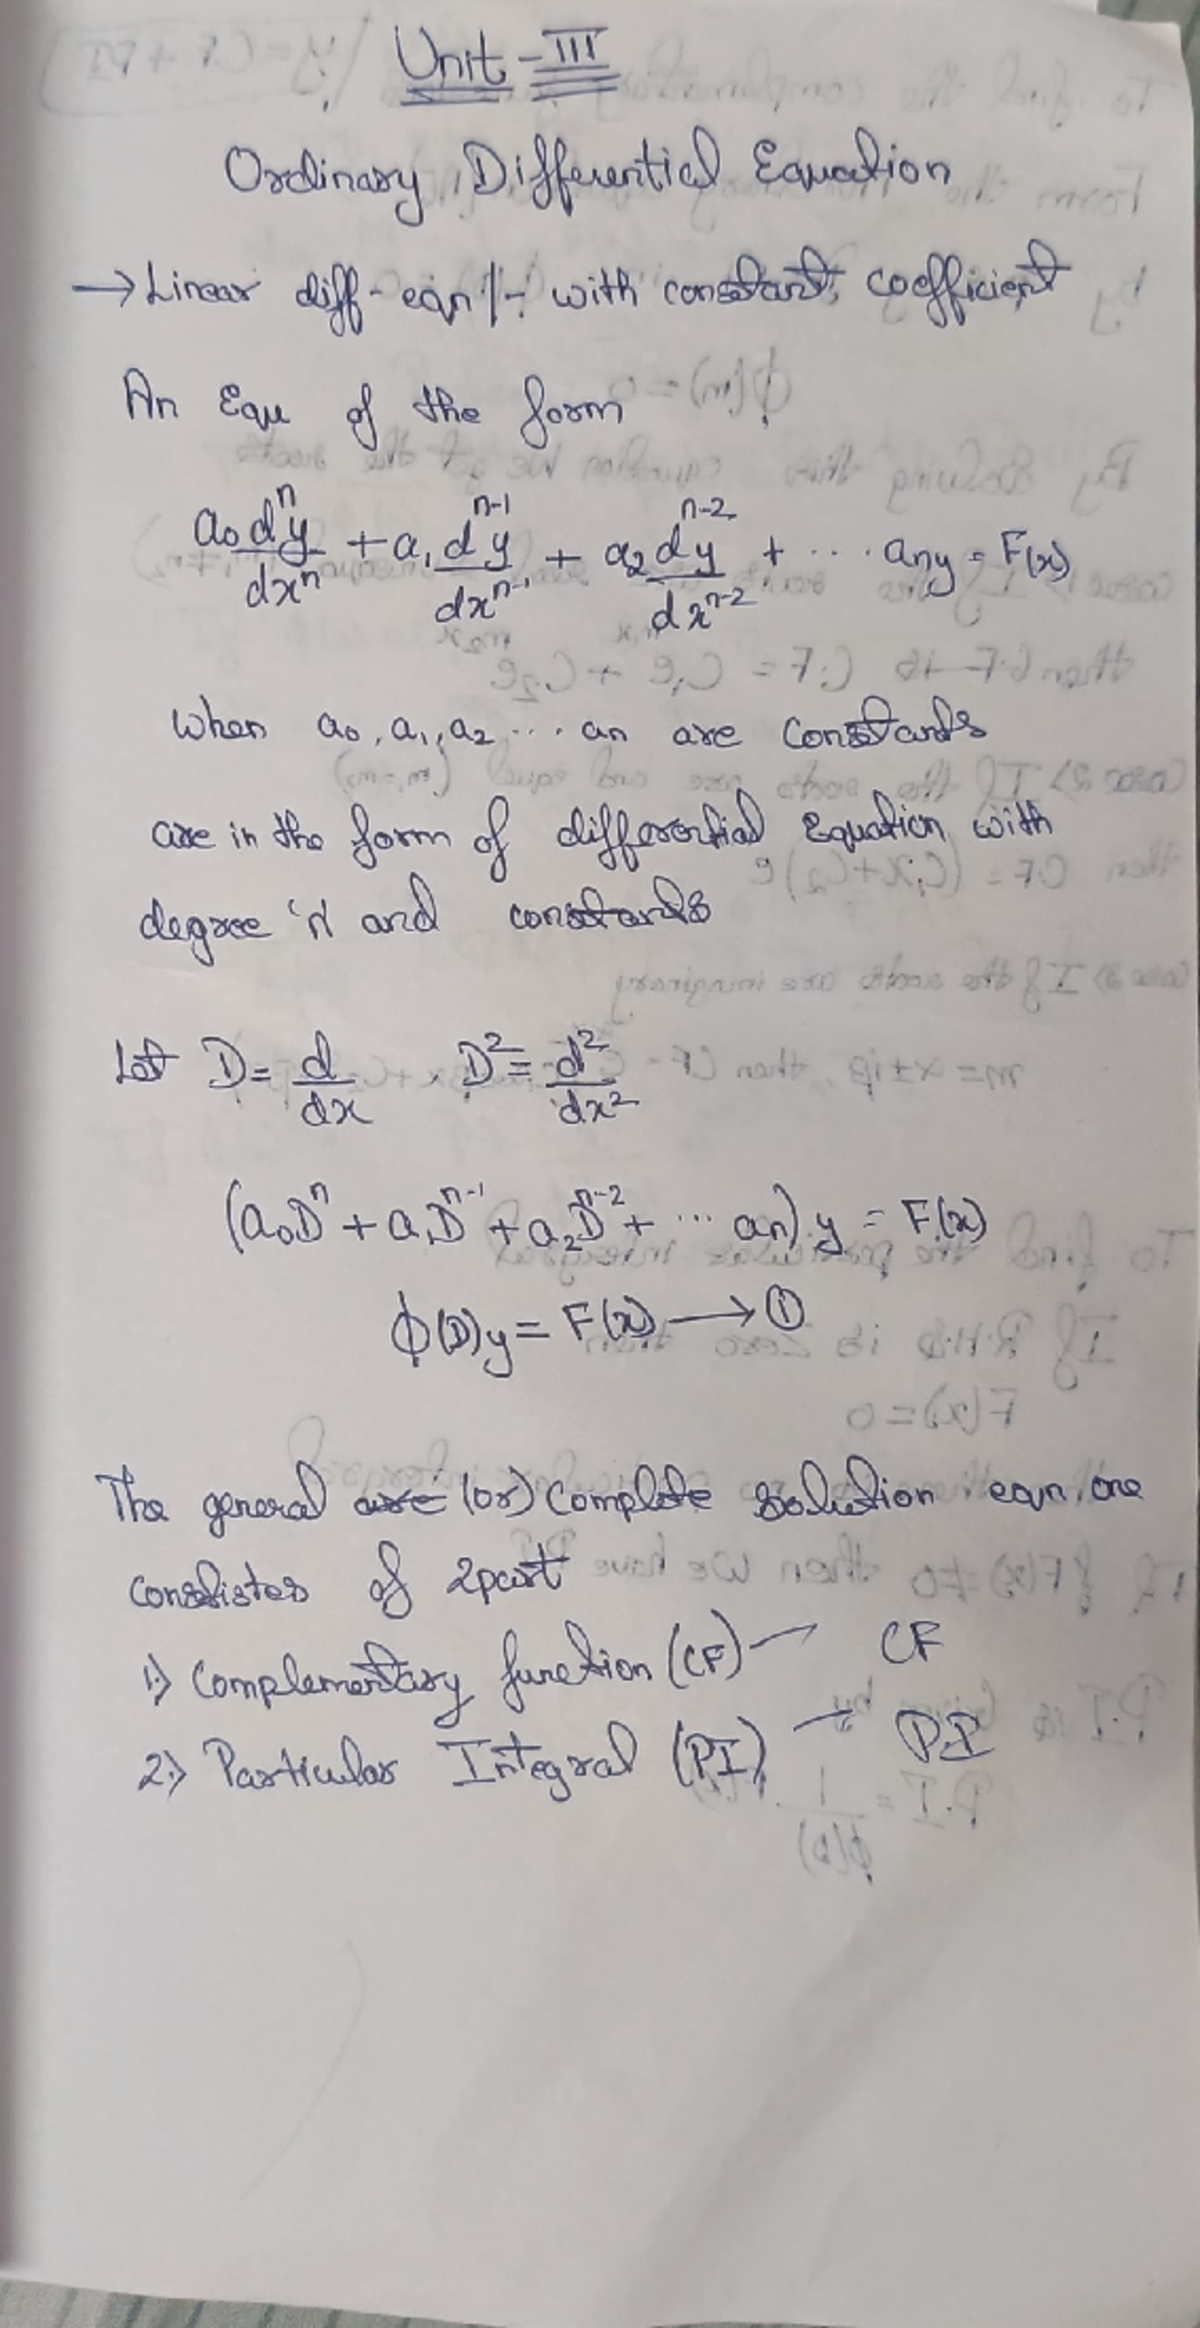 Unit - III
Ordinary Differential Equation
→ Linear diff- eqn |- with constant coefficient
An Equ of the form
a₀ dⁿy/dxⁿ + a₁ dⁿ⁻¹y/dxⁿ⁻¹ + a₂ dⁿ⁻²y/dxⁿ⁻² + ... any = F(x)
when a₀, a₁, a₂ ... an are constants
are in the form of differential Equation with
degree 'n' and constants
Let D = d/dx , D² = d²/dx²
(a₀Dⁿ + a₁Dⁿ⁻¹ + a₂Dⁿ⁻² + ... an) y = F(x)
ϕ(D)y = F(x) → ①
The general are (or) complete solution eqn one
consistes of 2part
1) Complementary function (CF) → CF
2) Particular Integral (PI) → P.I